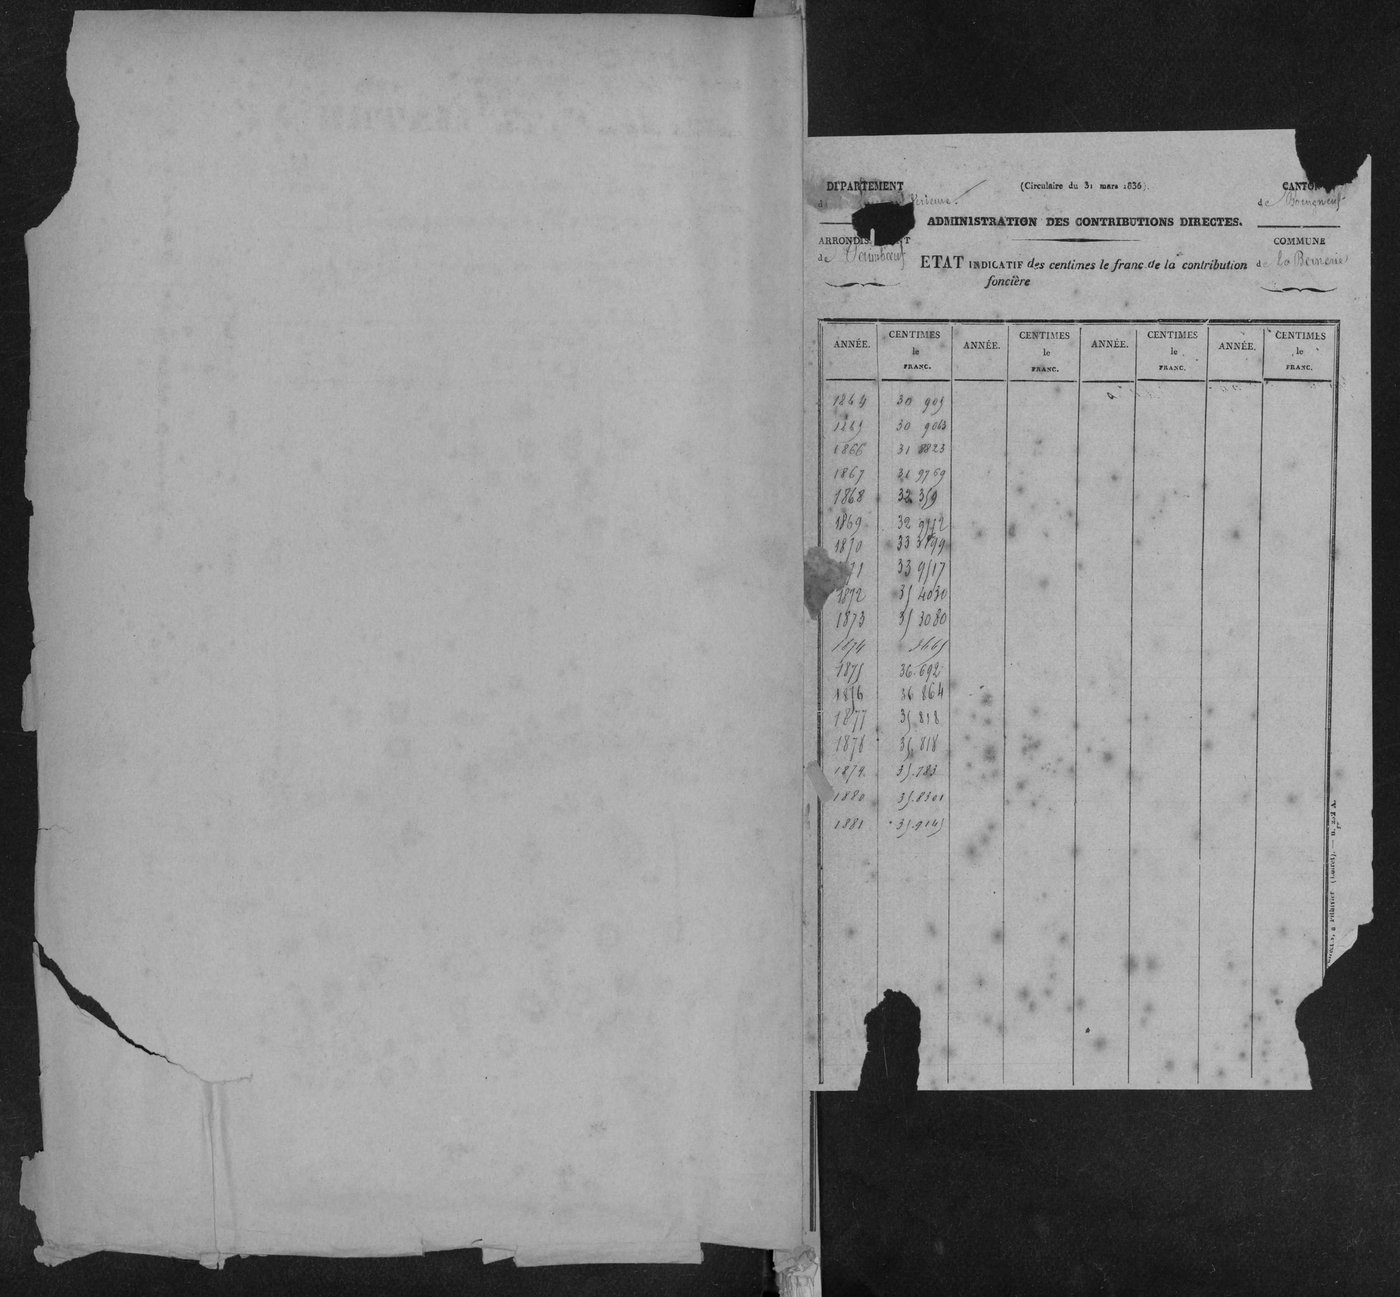 DÉPARTEMENT
(Circulaire du 31 mars 1836).
CANTON
de Bourgneuf
ADMINISTRATION DES CONTRIBUTIONS DIRECTES.
ARRONDIS
NT
COMMUNE
de Paimboeuf
ETAT INDICATIF des centimes le franc de la contribution
foncière
de la Bernerie
ANNÉE. CENTIMES le FRANC. ANNÉE. CENTIMES le FRANC. ANNÉE. CENTIMES le FRANC. ANNÉE. CENTIMES le FRANC.
1864 30 905
1865 30 9063
1866 31 8823
1867 31 9769
1868 32 359
1869 32
1870 33
71 33 9517
1872 35 4030
1873 35 3080
1874
1875 36.692
1876 36 864
1877 35 818
1878 35.818
1879 35.783
1880 35.8301
1881 35.9145